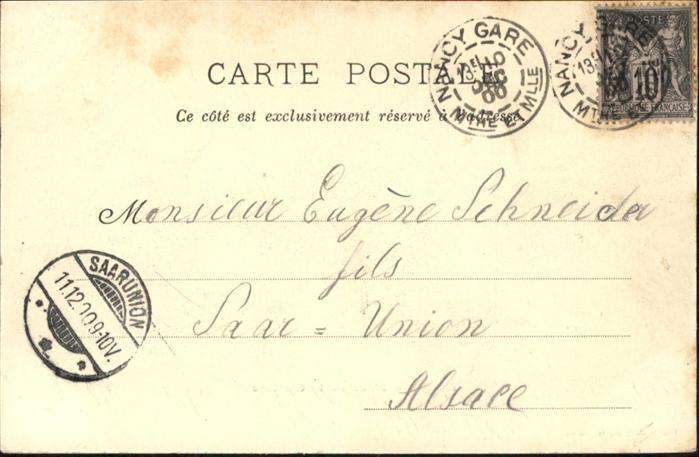 CARTE POSTALE
Ce côté est exclusivement réservé à l'adresse
NANCY GARE
10
DÉC
MTHE & MLLE
POSTE
10
Monsieur Eugène Schneider
fils
Saar=Union
Alsace
SAARUNION
11.12.
9-10V.